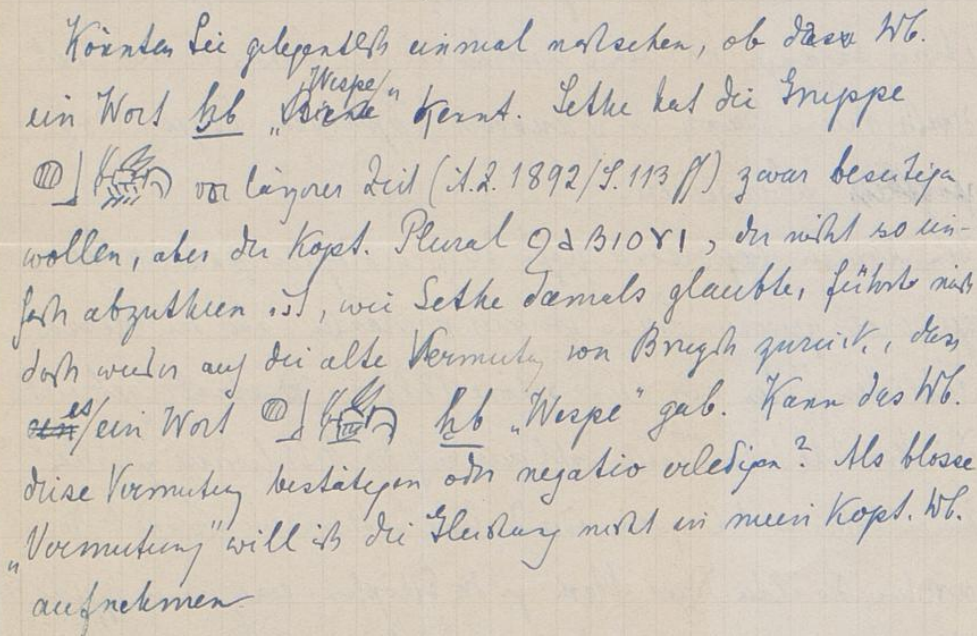 Könnten Sie gelegentlich einmal nachsehen, ob das Wb.
ein Wort ḫb „Wespe“ kennt. Sethe hat die Gruppe
𓐍𓃀𓆤 vor längerer Zeit (Ä.Z. 1892/S. 113 ff) zwar beseitigen
wollen, aber der Kopt. Plural ϩⲁⲃⲓⲟⲩⲓ, der nicht so ein-
fach abzuthun ist, wie Sethe damals glaubte, führt mich
doch wieder auf die alte Vermutung von Brugsch zurück, dass
es ein Wort 𓐍𓃀𓆤 ḫb „Wespe“ gab. Kann das Wb.
diese Vermutung bestätigen oder negativ erledigen? Als blosse
„Vermutung“ will ich die Gleichung nicht in mein Kopt. Wb.
aufnehmen